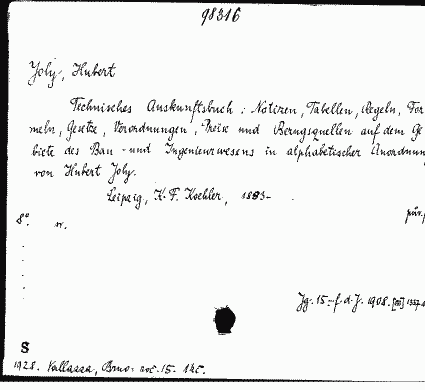 98316
Joly, Hubert
Technisches Auskunftsbuch; Notizen, Tabellen, Regeln, For
meln, Gesetze, Verordnungen, Preise und Bezugsquellen auf dem Ge
biete des Bau- und Ingenieurwesens in alphabetischer Anordnung
von Hubert Joly.
Leipzig, K. F. Koehler, 1893-
8° v. pův.
Jg. 15 f. d. J. 1908.
S
1928. Vallassa, Brno: roč. 15. 1 Kč.